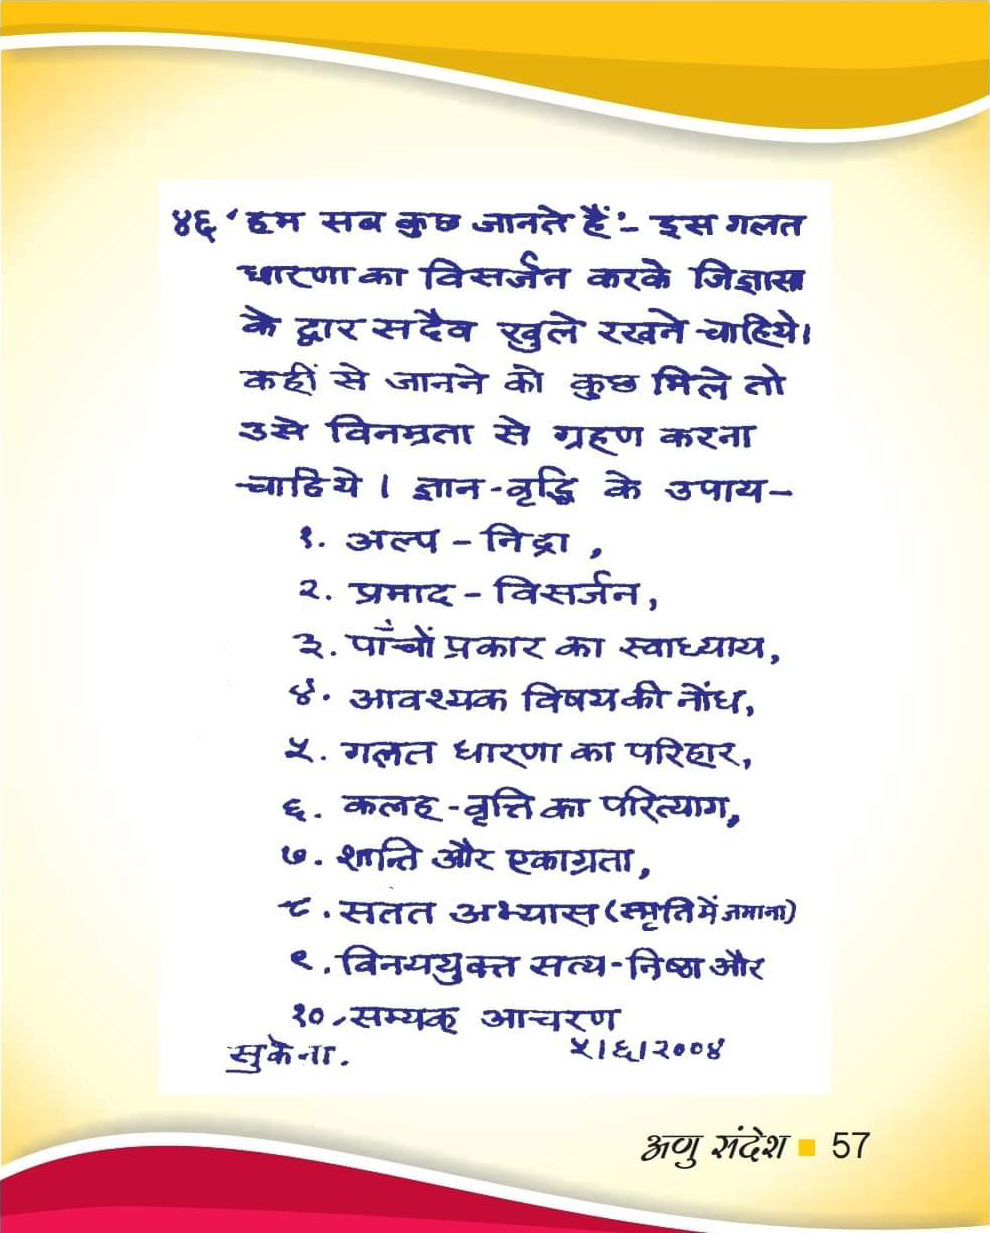 ४६ 'हम सब कुछ जानते हैं'- इस गलत
धारणा का विसर्जन करके जिज्ञासा
के द्वार सदैव खुले रखने चाहिये।
कहीं से जानने को कुछ मिले तो
उसे विनम्रता से ग्रहण करना
चाहिये। ज्ञान-वृद्धि के उपाय-
१. अल्प - निद्रा,
२. प्रमाद - विसर्जन,
३. पाँचों प्रकार का स्वाध्याय,
४. आवश्यक विषय की नोंध,
५. गलत धारणा का परिहार,
६. कलह-वृत्ति का परित्याग,
७. शान्ति और एकाग्रता,
८. सतत अभ्यास (स्मृति में जमाना)
९. विनययुक्त सत्य-निष्ठा और
१०. सम्यक् आचरण
सुकेना. ५।६।२००४
अणु संदेश ■ 57